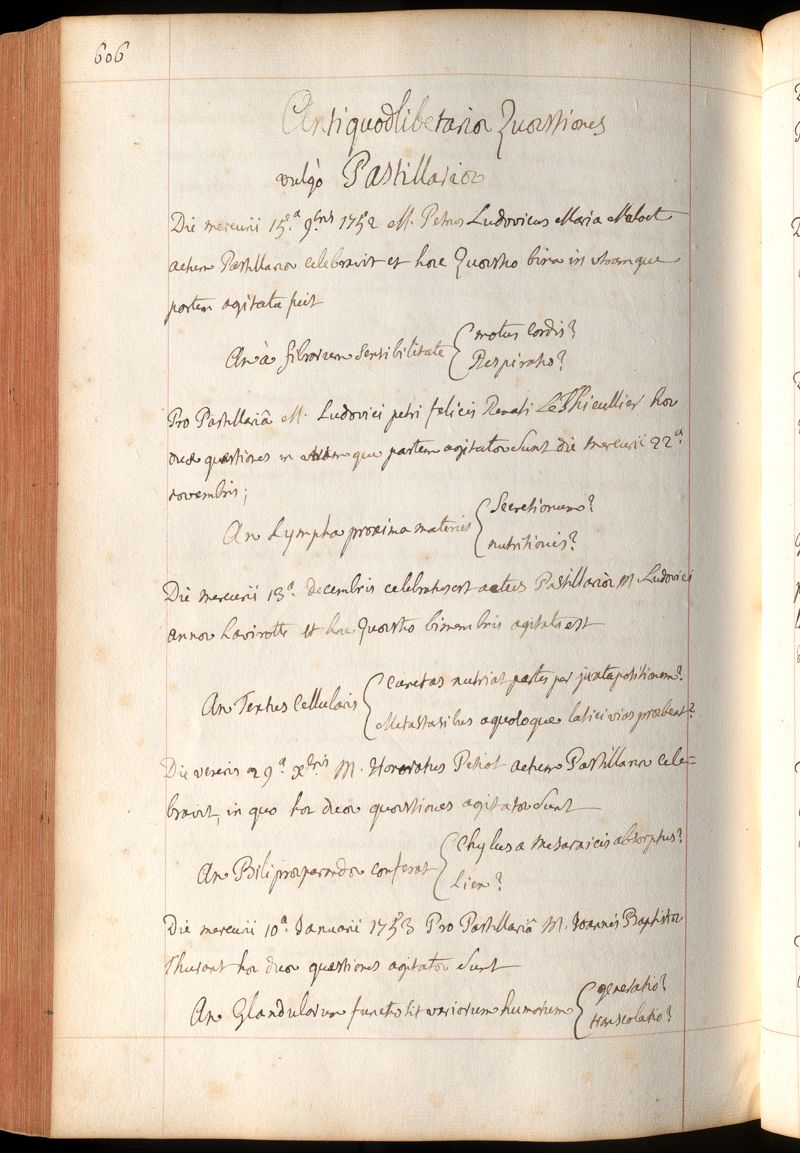 606
Antiquodlibetariæ Quæstiones
vulgò Pastillariæ
Die mercurii 15.ª 9.bris 1752 M. Petrus Ludovicus Maria Maloet
actum Pastillariæ celebravit et hæc Quæstio bina in utramque
partem agitata fuit
An à fibrarum sensibilitate { motus Cordis?
Respiratio?
Pro Pastillariâ M. Ludovici petri felicis Renati LeThieullier hæ
duæ quæstiones in utramque partem agitatæ Sunt die mercurii 22.ª
novembris;
An Lympha proxima materies { Secretionum?
nutritionis?
Die mercurii 13.ª decembris celebratus est actus Pastillariæ M. Ludovici
annæ Lavirotte et hæc Quæstio bimembris agitata est
An Textus Cellularis { Cunctas nutriat partes per juxtapositionem?
Metastasibus aquoloque latici vias præbeat?
Die veneris 29.ª X.bris M. Honoratus Petiot actum Pastillariæ cele=
bravit, in quo hæ duæ quæstiones agitatæ Sunt
An Bili præparandæ conferat { Chylus a mesaraicis absorptus?
Lien?
Die mercurii 10.ª Januarii 1753 Pro Pastillariâ M. Joannis Baptistæ
Thurant hæ duæ quæstiones agitatæ Sunt
An Glandularum functio sit variorum humorum { generatio?
transcolatio?